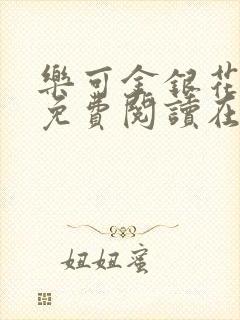 樂可金銀花
免費閱讀在
妞妞蜜